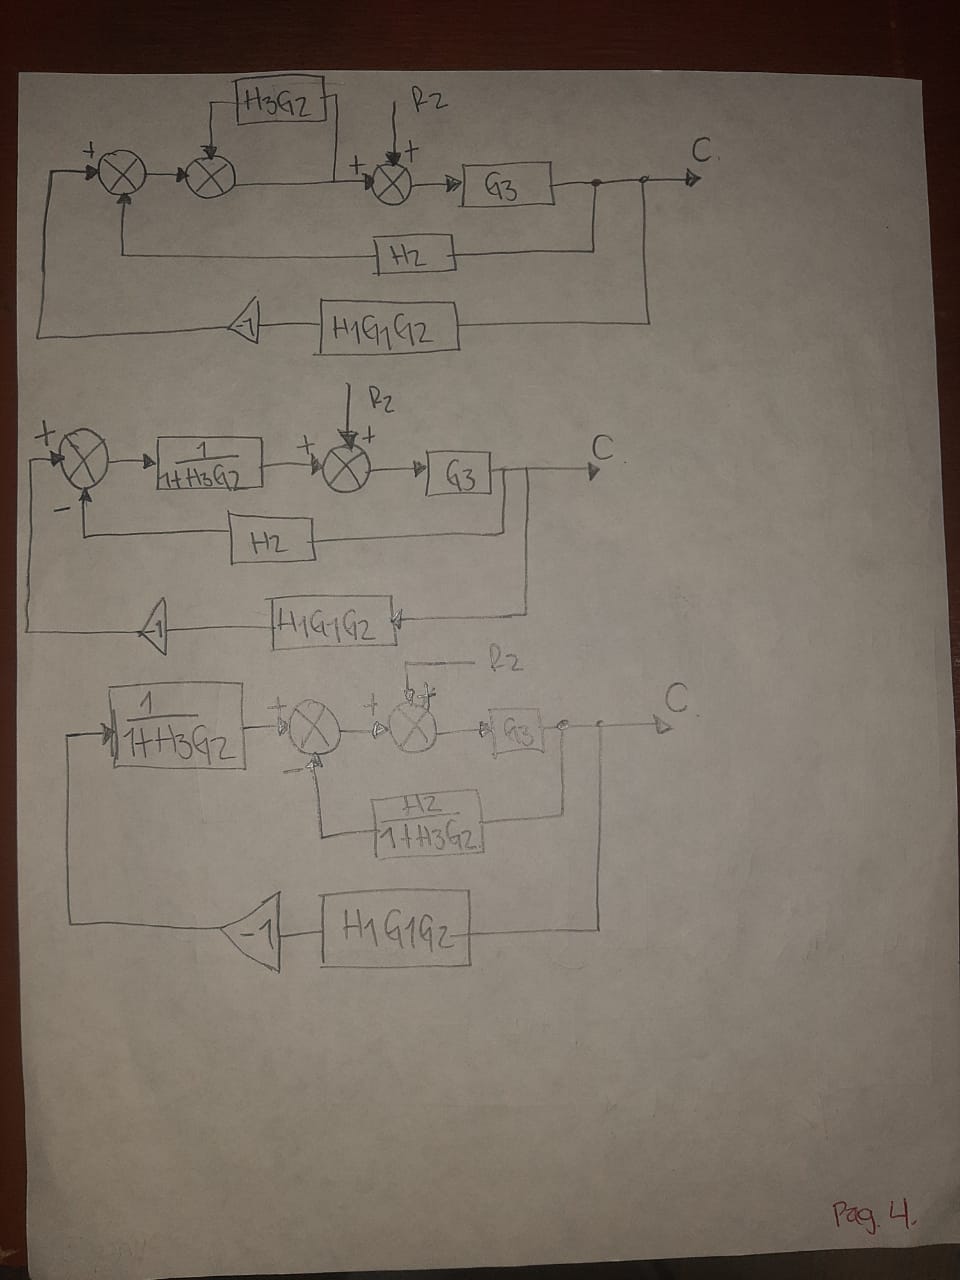 H3G2
R2
+
+
+
G3
C.
H2
-1
H1G1G2
R2
+
1
1+H3G2
+
+
G3
C
-
H2
-1
H1G1G2
R2
1
1+H3G2
+
+
+
G3
C
-
H2
1+H3G2
-1
H1G1G2
Pag. 4.